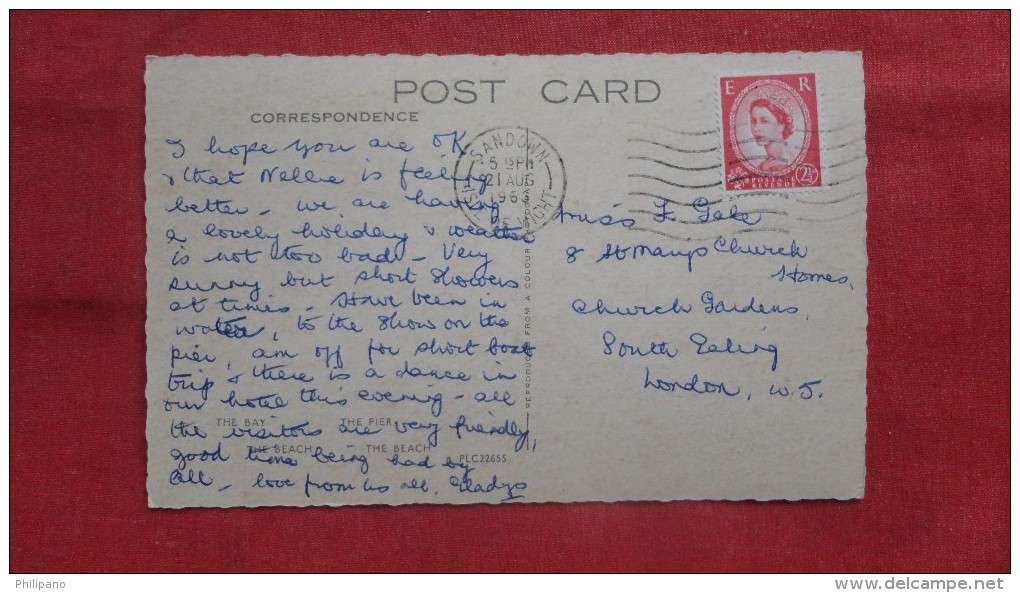 POST CARD
CORRESPONDENCE
I hope you are OK
& that Nellie is feeling
better - we are having
a lovely holiday & weather
is not too bad - Very
sunny but short showers
at times - Have been in
water, to the show on the
pier, am off for short boat
trip & there is a dance in
our hotel this evening - all
the visitors are very friendly,
good time being had by
all - love from us all, Gladys
THE BAY THE PIER
THE BEACH THE BEACH
PLC22655
REPRODUCED FROM A COLOUR
SANDOWN
5 15 PM
21 AUG
196
ISLE OF WIGHT
E R
POSTAGE
REVENUE
2½D
Miss F Gale
8 St Marys Church
Homes,
Church Gardens,
South Ealing
London, W.5.
Philipano
www.delcampe.net